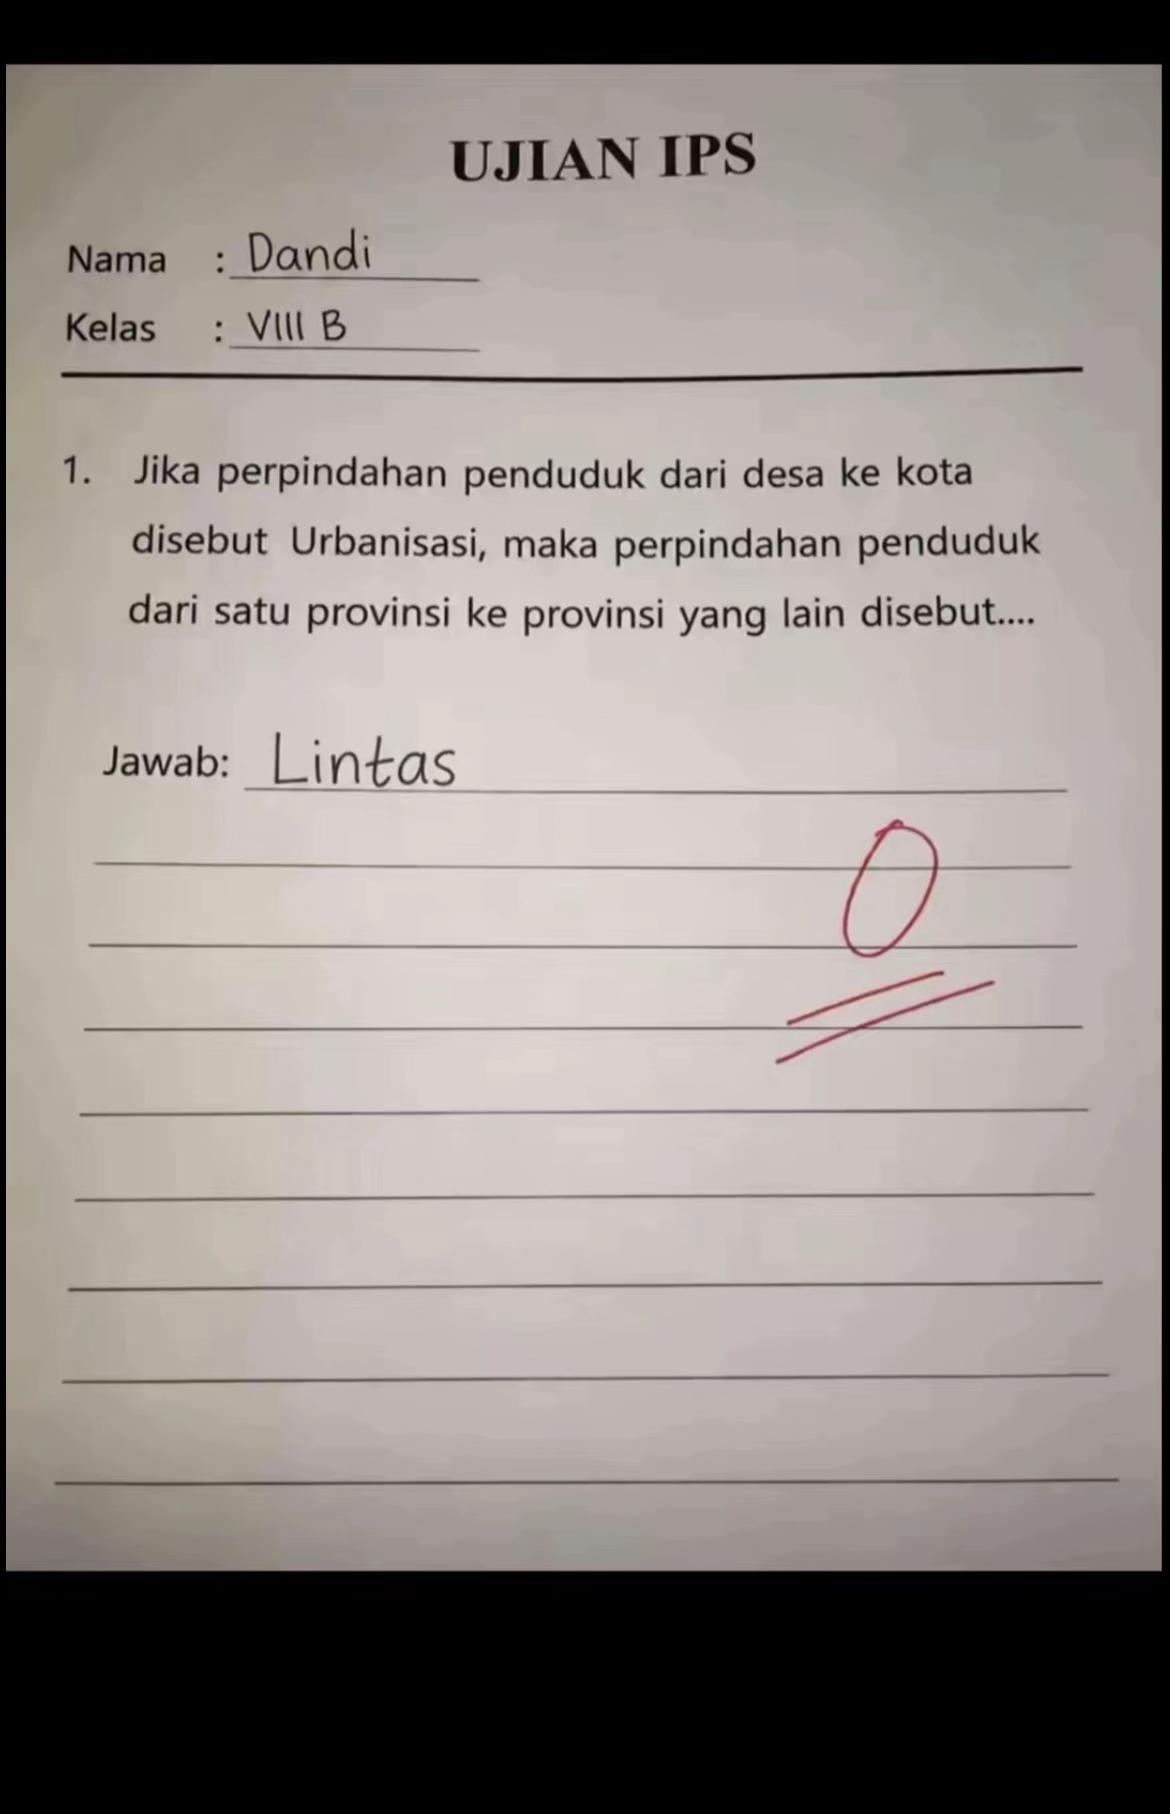 UJIAN IPS
Nama : Dandi
Kelas : VIII B
1. Jika perpindahan penduduk dari desa ke kota
disebut Urbanisasi, maka perpindahan penduduk
dari satu provinsi ke provinsi yang lain disebut....
Jawab: Lintas
0